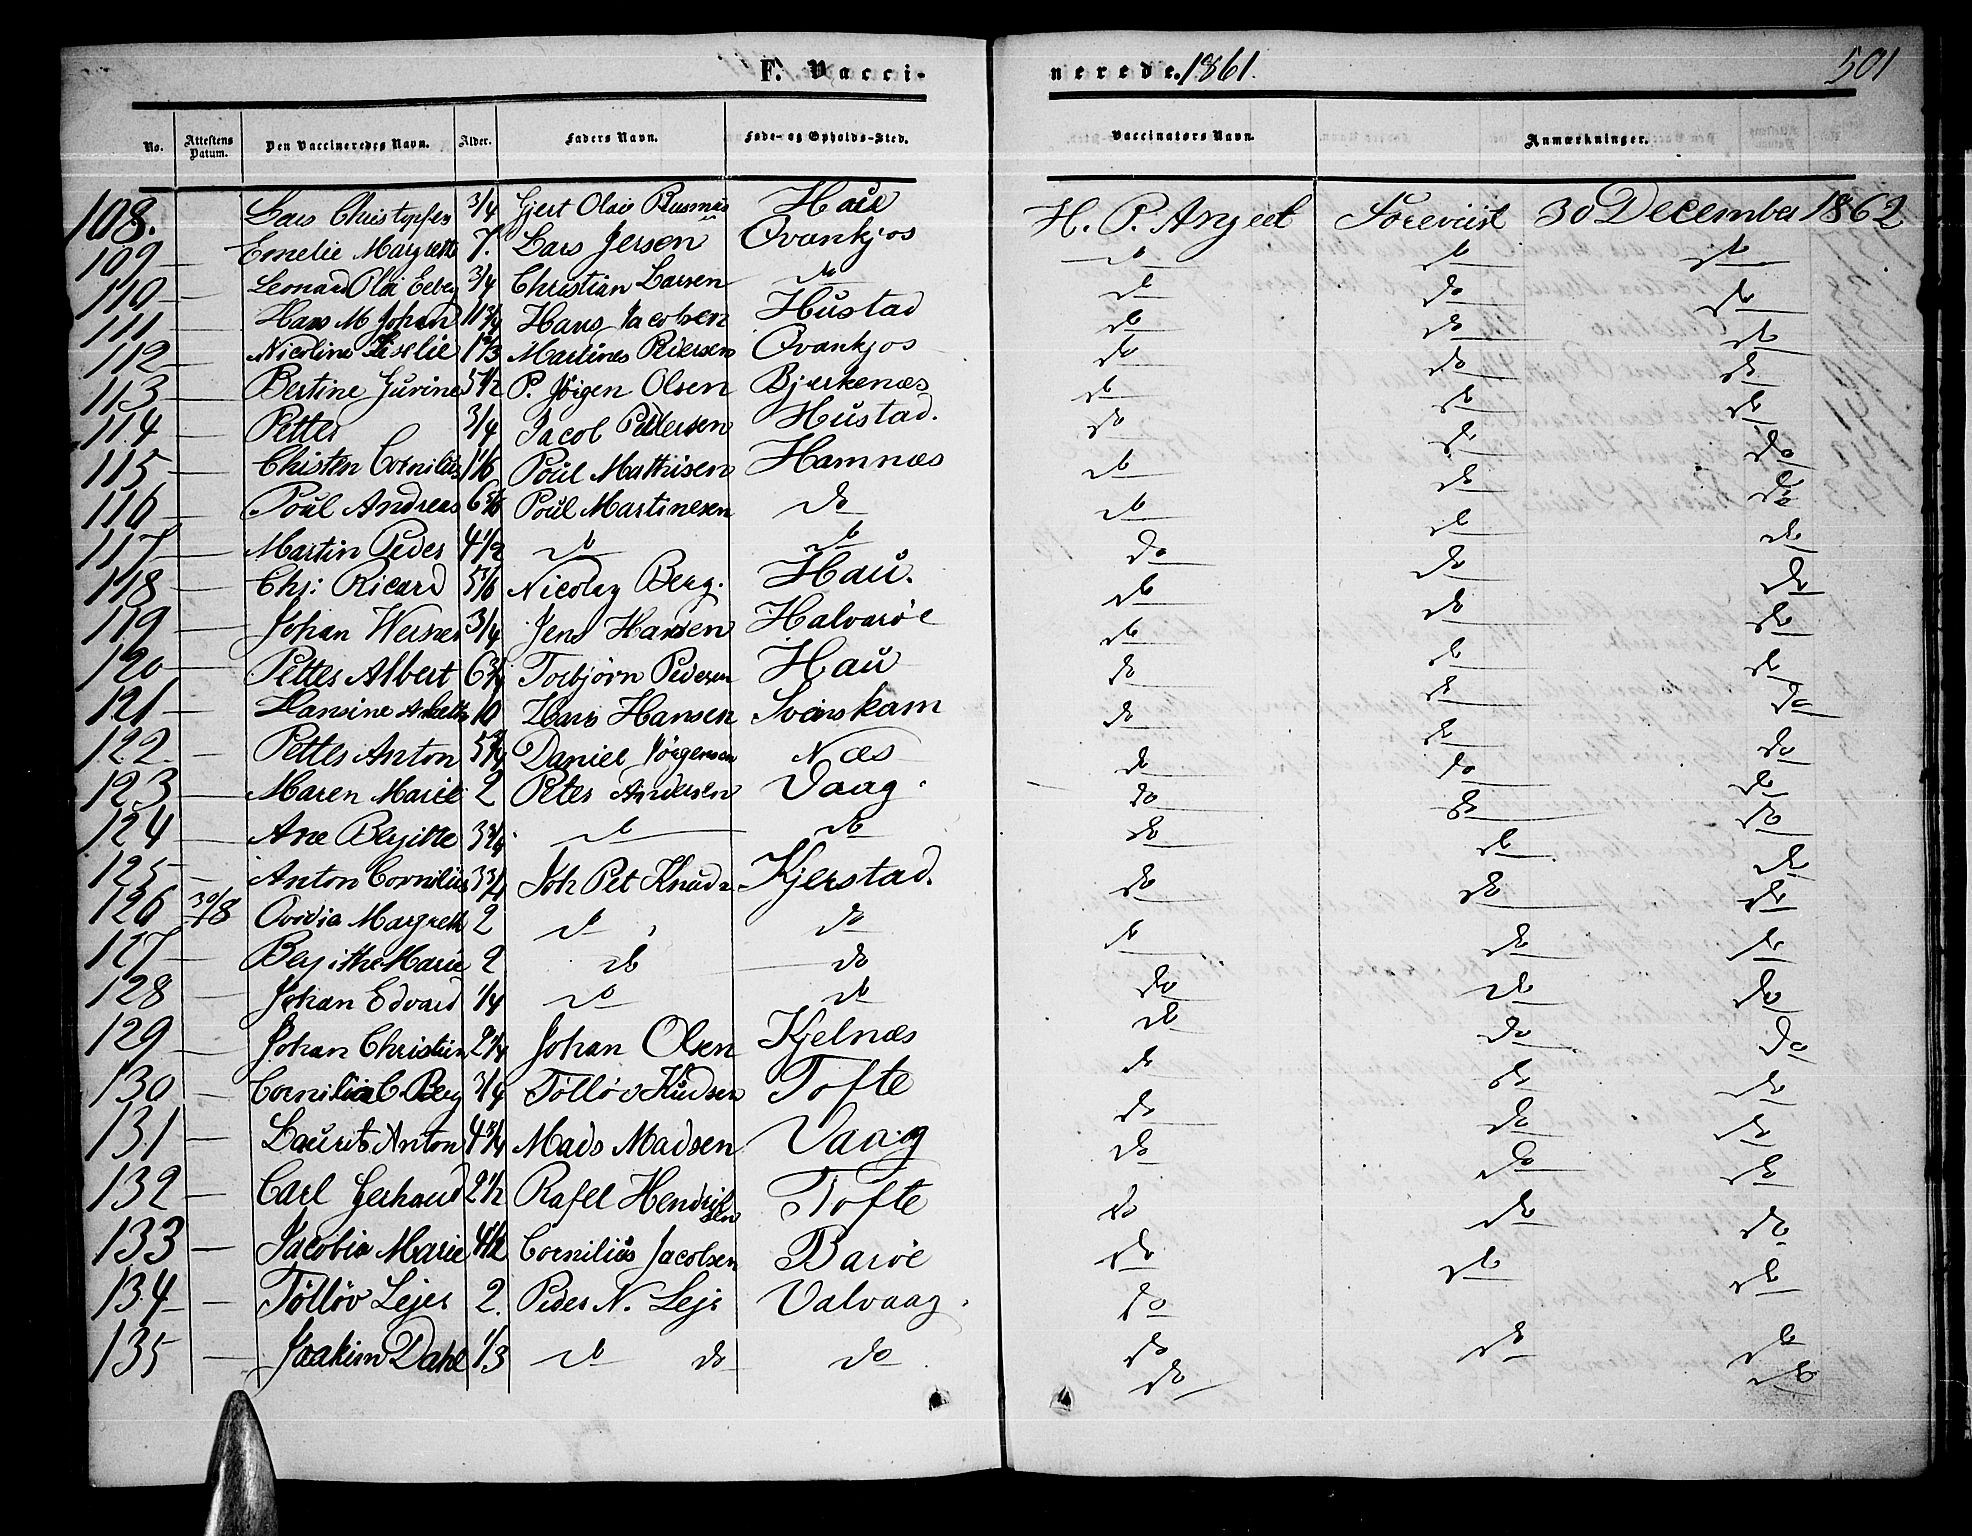 F. Vacci-
nerede. 1861. 501
No. Attestens Datum. Den Vaccineredes Navn. Alder. Faders Navn. Føde- og Opholds-Sted. Vaccinators Navn. Anmærkninger.
108. Lars Christopfer 3/4 Gjert Olai Hau H. P. Angeel 30 December 1862
109 — Emelie Magrethe 7. Lars Jersen Qvankjos do do do
110 — Leonard Olai 3/4 Christian Larsen do do do do
111 — Hans M Johan 11 3/4 Hans Jacobsen Hustad do do do
112 — Nicoline Martines Pedersen Qvankjos do do do
113 — Bertine Jurine 5 1/2 P. Jörgen Olsen Bjerkenæs do do do
114 — Petter 3/4 Jacob Pedersen Hustad. do do do
115 — Christen Cornilius 1/6 Poul Mathisen Hamnæs do do do
116 — Poul Andreas 6 Poul Martinesen do do do do
117 — Martin Peder 4 1/2 do do do do do
118 — Chr: Ricard 5/6 Nicolay Berg. Hau. do do do
119 — Johan Werner 3/4 Jens Hansen Halvarøe do do do
120 — Petter Albert 6 3/4 Torbjörn Pedersen Hau do do do
121 — Hansine 10 Hans Hansen Svenskam do do do
122. — Petter Anton 5 3/4 Daniel Jörgensen Næs do do do
123 — Maren Marie 2 Peter Andersen Vaag. do do do
124 — Ane Bergitte 3 3/4 do do do do do
125 — Anton Cornilius 3 3/4 Joh Pet Knuds. Kjerstad. do do do
126 30/8 Ovidia Margreth 2 do do do do do
127 — Bergithe Marie 2 do do do do do
128 — Johan Edvard 1/4 do do do do do
129 — Johan Christian 2 1/4 Johan Olsen Kjelnæs do do do
130 — Cornilia C. Berg 3/4 Tölløv Knudsen Tofte do do do
131 — Laurits Anton 4 3/4 Mads Madsen Vaag do do do
132 — Carl Gerhard 2 1/2 Rafel Hendriksen Tofte do do do
133 — Jacobia Marie 4 1/2 Cornilius Jacobsen Barøe do do do
134 — Tölløv Lejer 2. Peder N. Lejr Valvaag. do do do
135 — Joakim Dahl 1/3 do do do do do do
do do